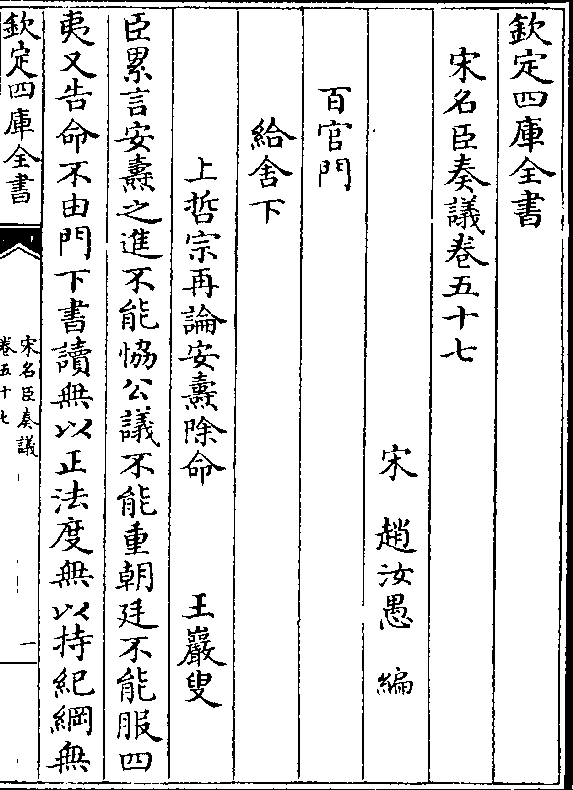 欽定四庫全書
宋名臣奏議卷五十七
宋 趙汝愚 編
百官門
給舍下
上哲宗再論安燾除命 王巖叟
臣累言安燾之進不能恊公議不能重朝廷不能服四
夷又告命不由門下書讀無以正法度無以持紀綱無
欽定四庫全書
宋名臣奏議
卷五十七
一